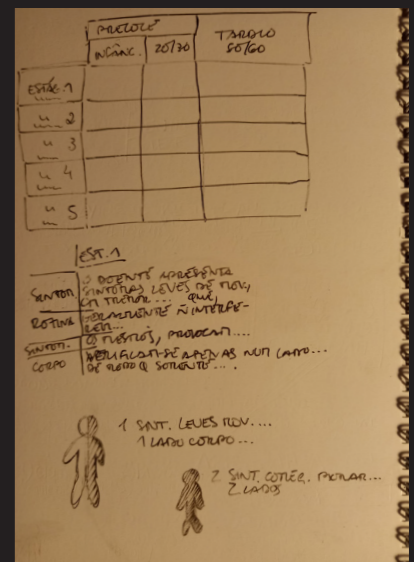 PRECOCE
TARDIO
INFÂNC. 20/30 50/60
ESTÁG. 1
" 2
" 3
" 4
" 5
EST. 1
O DOENTE APRESENTA
SINTOM. SINTOMAS LEVES DE MOV.,
TREMOR... QUE,
ROTINA GERALMENTE Ñ INTERFE-
REM...
SINTOM. OS MESMOS, PROVOCAM....
CORPO VERIFICAM-SE APENAS NUM LADO...
DE MODO Q SOMENTE....
1 SINT. LEVES MOV....
1 LADO CORPO...
2 SINT. COMEÇ. PIORAR...
2 LADOS